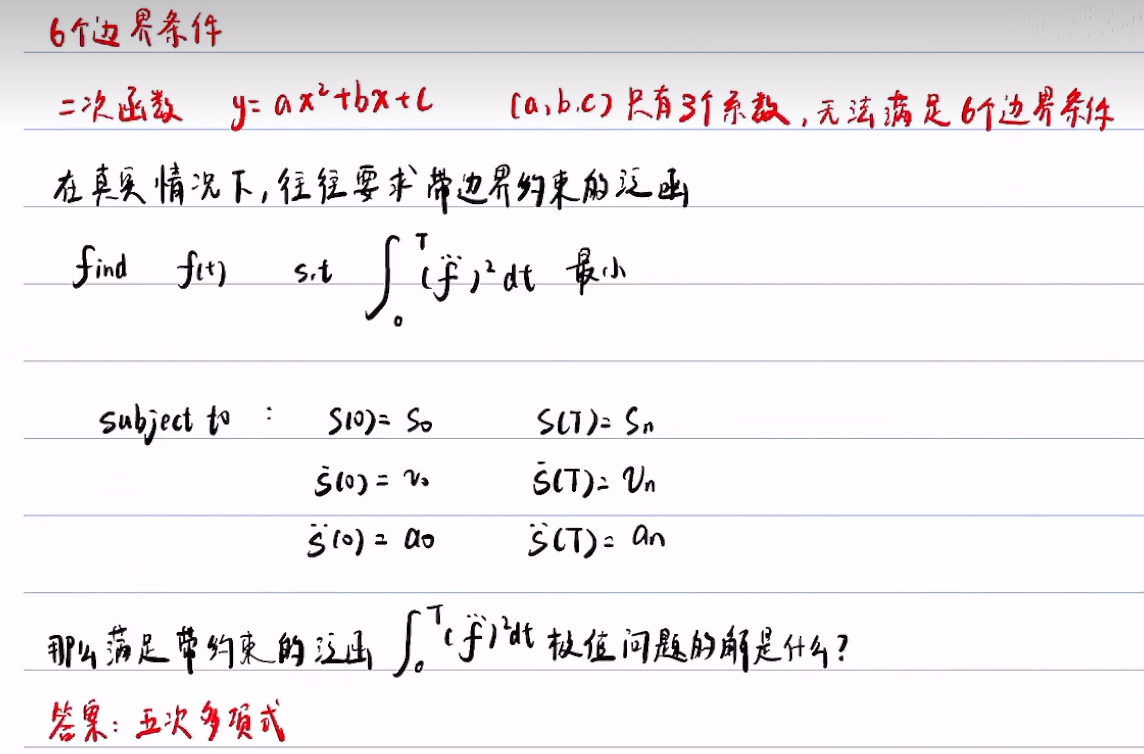 6个边界条件
二次函数 y=ax²+bx+c (a,b,c)只有3个系数,无法满足6个边界条件
在真实情况下,往往要求带边界约束的泛函
find f(t) s.t ∫₀ᵀ(f⃛)²dt 最小
subject to : S(0)=S₀ S(T)=Sₙ
ṡ(0)=v₀ ṡ(T)=vₙ
s̈(0)=a₀ s̈(T)=aₙ
那么满足带约束的泛函 ∫₀ᵀ(f⃛)²dt 极值问题的解是什么?
答案:五次多项式